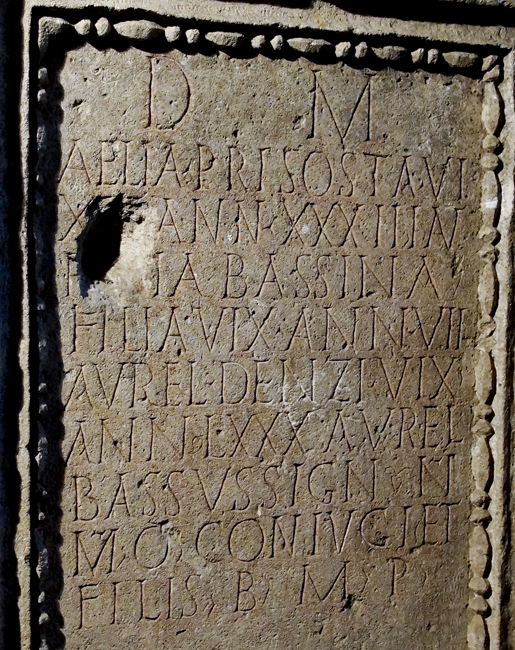 D M
AELIA PRISOSTA VI
X ANN XXXIIII AV
IA BASSINA
FILIA VIX ANN VII
AVREL DENZI VIX
ANN LXXX AVREL
BASSVS SIGN N
M O CONIVGI ET
FILIS B M P